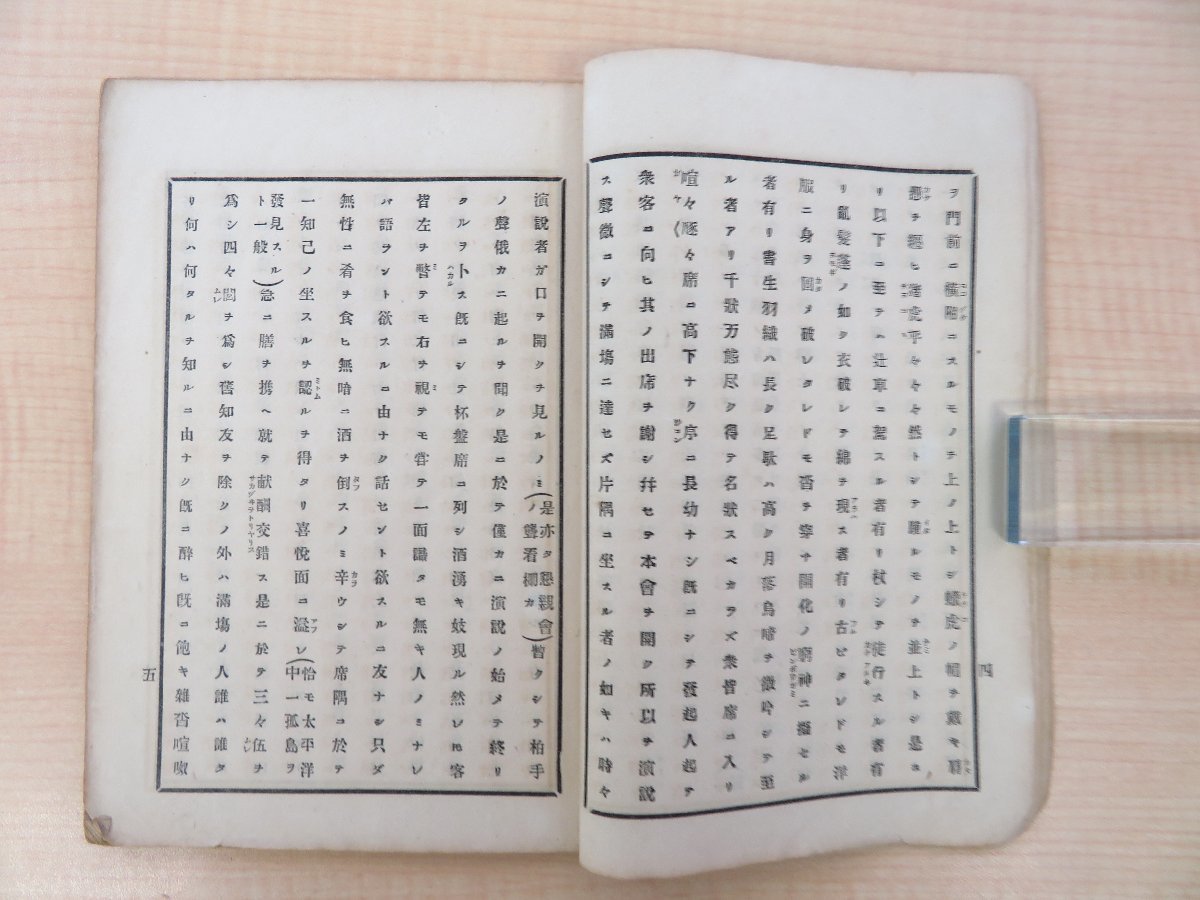 ヲ門前ニ橫附ニスルモノヲ上ノ上トシ蠟虎ノ帽ヲ戴キ肩
リ以下ニ至テハ辻車ニ駕スル者有リ杖シテ徒行スル者有
リ亂髮蓬ノ如ク衣破レテ綿ヲ現ス者有リ古ビタレドモ洋
服ニ身ヲ固メ破レタレドモ沓ヲ穿チ開化ノ窮神ニ擬セル
者有リ書生羽織ハ長ク足駄ハ高ク月落烏啼ヲ微吟シテ至
ル者アリ千狀万態尽ク得テ名狀スベカラズ衆皆席ニ入リ
喧々
席ニ高下ナク序ニ長幼ナシ既ニシテ發起人起テ
衆客ニ向ヒ其ノ出席ヲ謝シ幷セテ本會ヲ開ク所以ヲ演說
ス聲微ニシテ滿塲ニ達セズ片隅ニ坐スル者ノ如キハ時々
四
演說者ガ口ヲ開クヲ見ルノミ(是亦タ懇親會ノ聾看棚カ)暫クシテ柏手
ノ聲俄カニ起ルヲ聞ク是ニ於テ僅カニ演說ノ始メテ終リ
タルヲトス既ニシテ杯盤席ニ列シ酒漢キ妓現ル然レ𪜈客
皆左ヲ瞥テモ右ヲ視テモ甞テ一面識タモ無キ人ノミナレ
バ語ヲント欲スルニ由ナク話セント欲スルニ友ナシ只ダ
無性ニ肴ヲ食ヒ無暗ニ酒ヲ倒スノミ辛ウシテ席隅ニ於テ
一知己ノ坐スルヲ認ルヲ得タリ喜悅面ニ溢レ(恰モ太平洋中一孤島ヲ
發見スルト一般)急ニ膳ヲ携ヘ就テ獻酬交錯ス是ニ於テ三々伍ヲ
爲シ四々團ヲ爲シ舊知友ヲ除クノ外ハ滿塲ノ人誰ハ誰タ
リ何ハ何タルヲ知ルニ由ナク既ニ醉ヒ既ニ飽キ雜沓喧呶
五